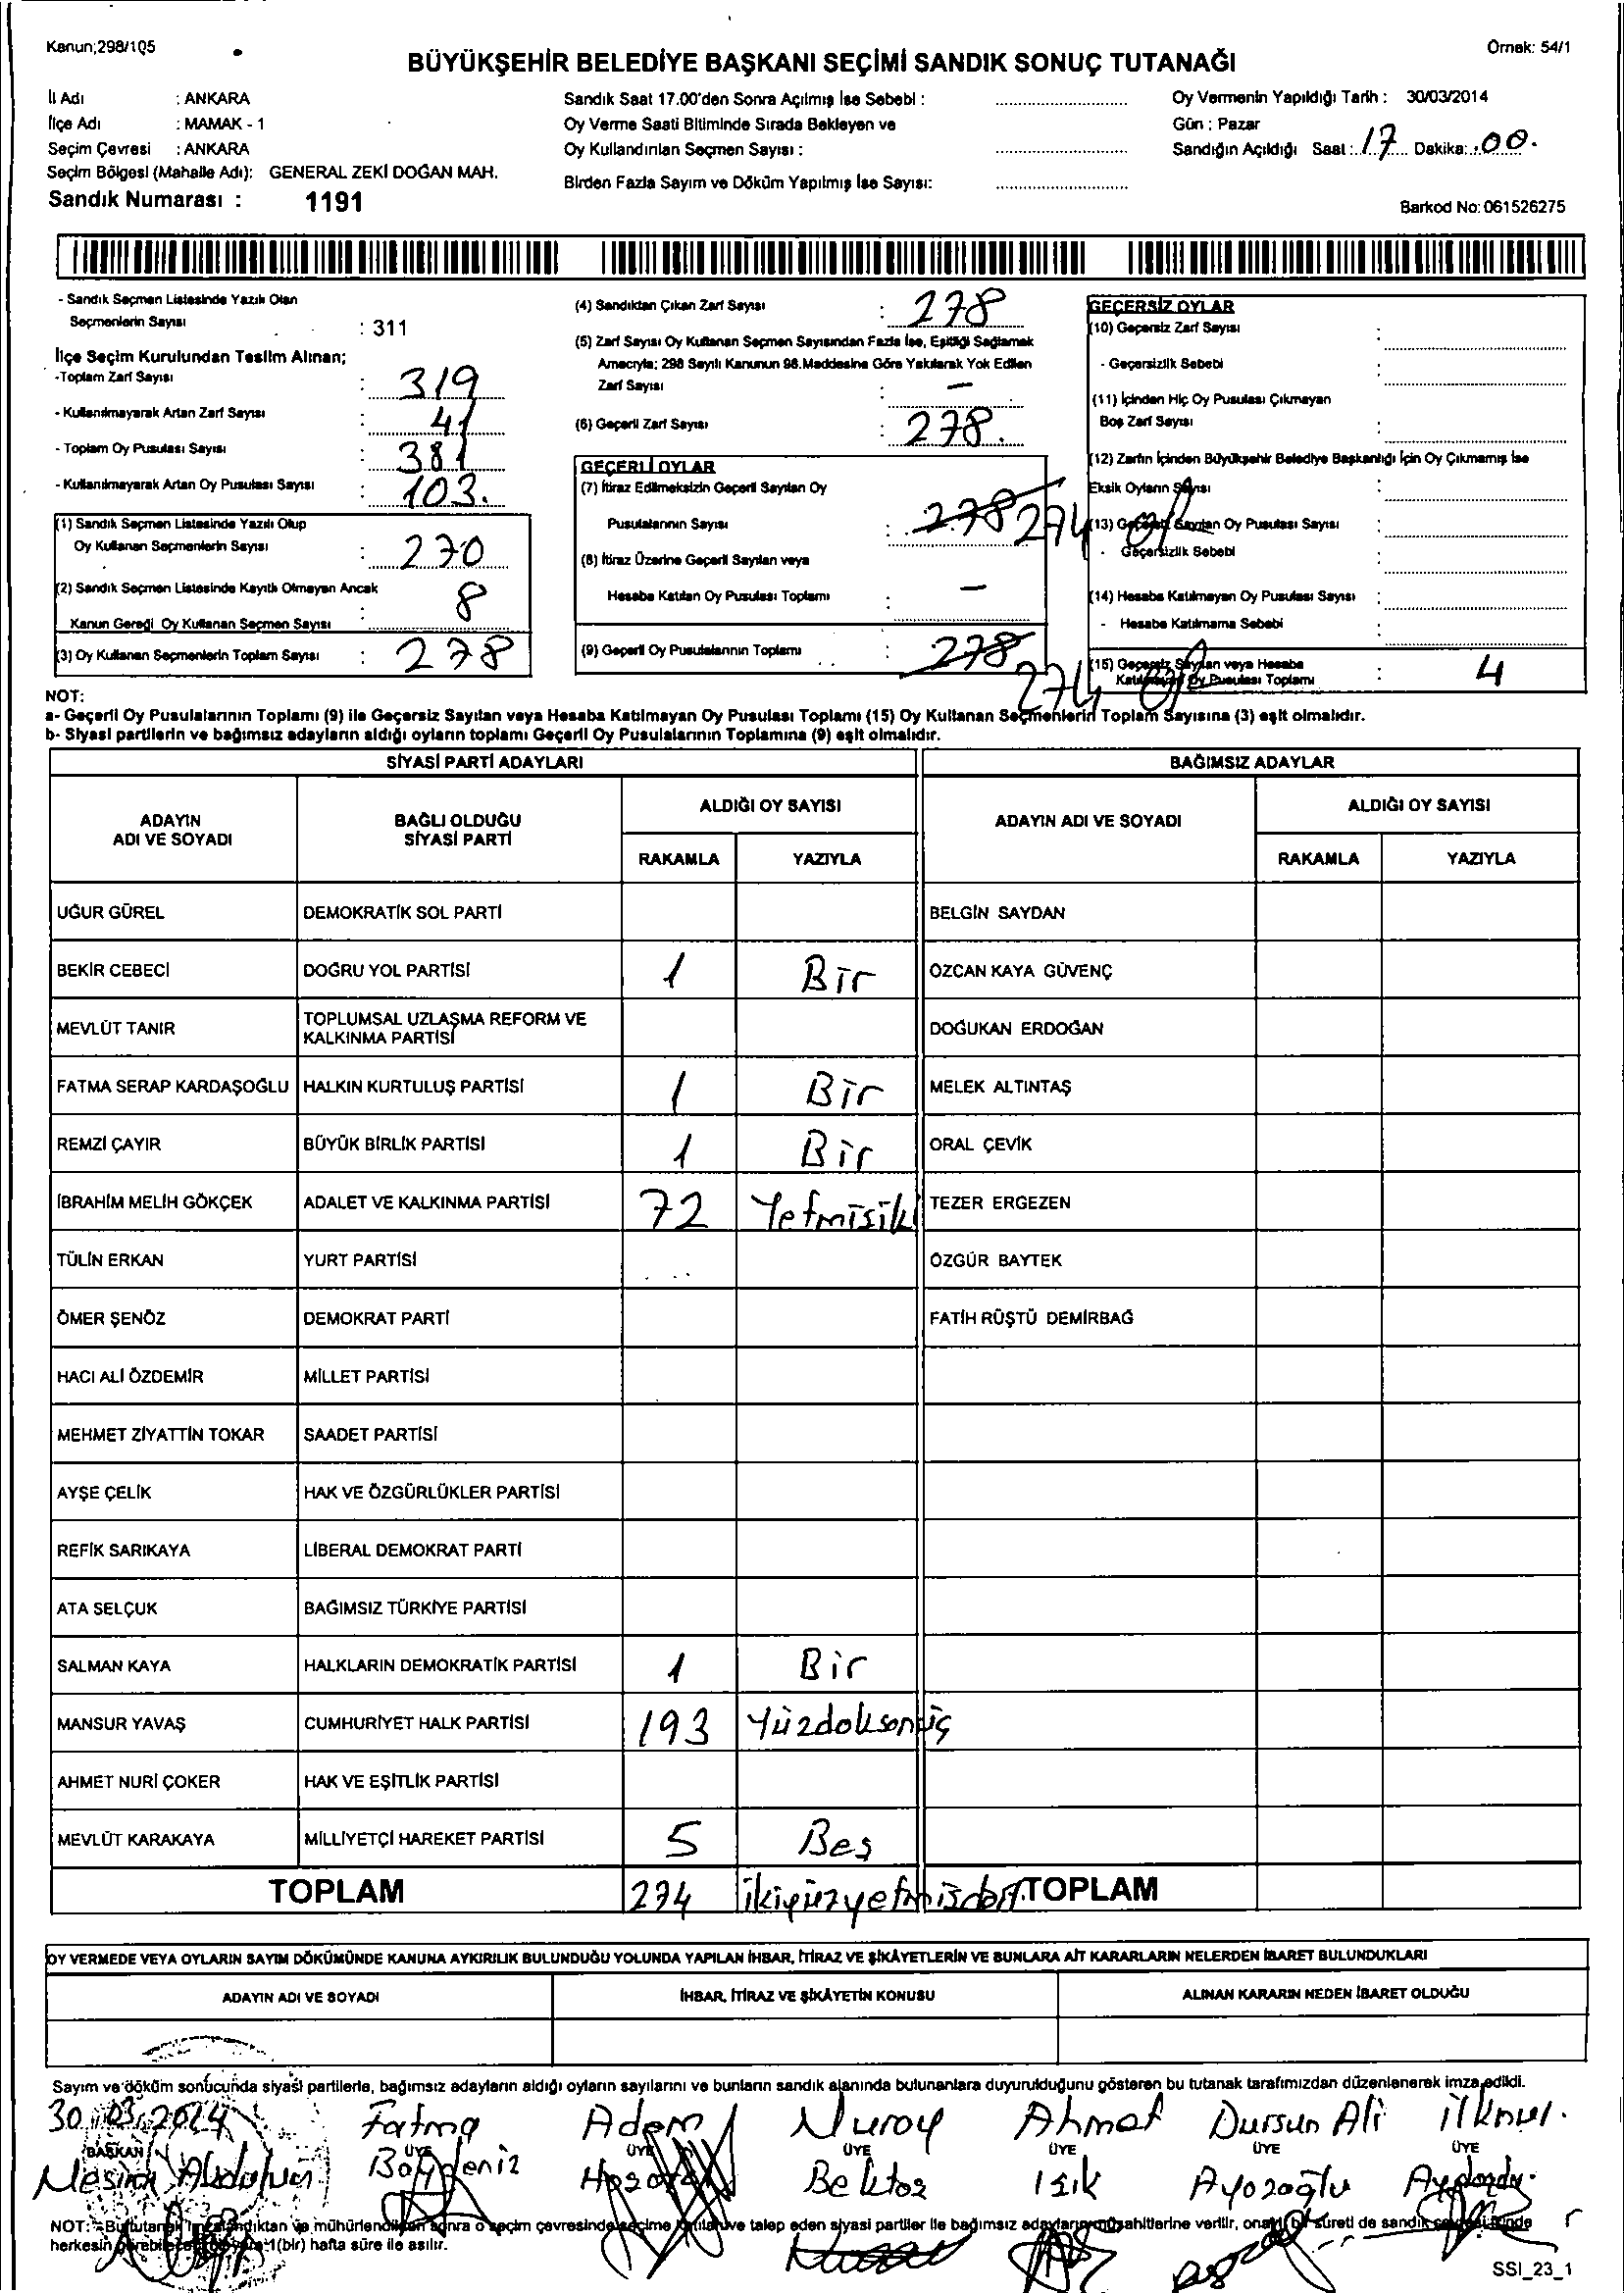 Kanun;298/105
Örnek: 54/1
BÜYÜKŞEHİR BELEDİYE BAŞKANI SEÇİMİ SANDIK SONUÇ TUTANAĞI
İl Adı : ANKARA
İlçe Adı : MAMAK - 1
Seçim Çevresi : ANKARA
Seçim Bölgesi (Mahalle Adı): GENERAL ZEKİ DOĞAN MAH.
Sandık Numarası : 1191
Sandık Saat 17.00'den Sonra Açılmış İse Sebebi :
Oy Verme Saati Bitiminde Sırada Bekleyen ve
Oy Kullandırılan Seçmen Sayısı :
Birden Fazla Sayım ve Döküm Yapılmış İse Sayısı:
Oy Vermenin Yapıldığı Tarih : 30/03/2014
Gün : Pazar
Sandığın Açıldığı Saat : 17 Dakika: 00.
Barkod No: 061526275
- Sandık Seçmen Listesinde Yazılı Olan
Seçmenlerin Sayısı : 311
İlçe Seçim Kurulundan Teslim Alınan;
-Toplam Zarf Sayısı : 319
- Kullanılmayarak Artan Zarf Sayısı : 41
- Toplam Oy Pusulası Sayısı : 381
- Kullanılmayarak Artan Oy Pusulası Sayısı : 103.
(1) Sandık Seçmen Listesinde Yazılı Olup
Oy Kullanan Seçmenlerin Sayısı : 270
(2) Sandık Seçmen Listesinde Kayıtlı Olmayan Ancak
Kanun Gereği Oy Kullanan Seçmen Sayısı : 8
(3) Oy Kullanan Seçmenlerin Toplam Sayısı : 278
(4) Sandıktan Çıkan Zarf Sayısı : 278
(5) Zarf Sayısı Oy Kullanan Seçmen Sayısından Fazla İse, Eşitliği Sağlamak
Amacıyla; 298 Sayılı Kanunun 98.Maddesine Göre Yakılarak Yok Edilen
Zarf Sayısı : —
(6) Geçerli Zarf Sayısı : 278.
GEÇERLİ OYLAR
(7) İtiraz Edilmeksizin Geçerli Sayılan Oy
Pusulalarının Sayısı : 278 274
(8) İtiraz Üzerine Geçerli Sayılan veya
Hesaba Katılan Oy Pusulası Toplamı : —
(9) Geçerli Oy Pusulalarının Toplamı : 278 274
GEÇERSİZ OYLAR
(10) Geçersiz Zarf Sayısı :
- Geçersizlik Sebebi :
(11) İçinden Hiç Oy Pusulası Çıkmayan
Boş Zarf Sayısı :
(12) Zarfın İçinden Büyükşehir Belediye Başkanlığı İçin Oy Çıkmamış İse
Eksik Oyların Sayısı :
(13) Geçersiz Sayılan Oy Pusulası Sayısı :
- Geçersizlik Sebebi :
(14) Hesaba Katılmayan Oy Pusulası Sayısı :
- Hesaba Katılmama Sebebi :
(15) Geçersiz Sayılan veya Hesaba
Katılmayan Oy Pusulası Toplamı : 4
NOT:
a- Geçerli Oy Pusulalarının Toplamı (9) ile Geçersiz Sayılan veya Hesaba Katılmayan Oy Pusulası Toplamı (15) Oy Kullanan Seçmenlerin Toplam Sayısına (3) eşit olmalıdır.
b- Siyasi partilerin ve bağımsız adayların aldığı oyların toplamı Geçerli Oy Pusulalarının Toplamına (9) eşit olmalıdır.
SİYASİ PARTİ ADAYLARI BAĞIMSIZ ADAYLAR
ADAYIN ADI VE SOYADI BAĞLI OLDUĞU SİYASİ PARTİ ALDIĞI OY SAYISI ADAYIN ADI VE SOYADI ALDIĞI OY SAYISI
RAKAMLA YAZIYLA RAKAMLA YAZIYLA
UĞUR GÜREL DEMOKRATİK SOL PARTİ BELGİN SAYDAN
BEKİR CEBECİ DOĞRU YOL PARTİSİ 1 Bir ÖZCAN KAYA GÜVENÇ
MEVLÜT TANIR TOPLUMSAL UZLAŞMA REFORM VE KALKINMA PARTİSİ DOĞUKAN ERDOĞAN
FATMA SERAP KARDAŞOĞLU HALKIN KURTULUŞ PARTİSİ 1 Bir MELEK ALTINTAŞ
REMZİ ÇAYIR BÜYÜK BİRLİK PARTİSİ 1 Bir ORAL ÇEVİK
İBRAHİM MELİH GÖKÇEK ADALET VE KALKINMA PARTİSİ 72 Yetmişiki TEZER ERGEZEN
TÜLİN ERKAN YURT PARTİSİ ÖZGÜR BAYTEK
ÖMER ŞENÖZ DEMOKRAT PARTİ FATİH RÜŞTÜ DEMİRBAĞ
HACI ALİ ÖZDEMİR MİLLET PARTİSİ
MEHMET ZİYATTİN TOKAR SAADET PARTİSİ
AYŞE ÇELİK HAK VE ÖZGÜRLÜKLER PARTİSİ
REFİK SARIKAYA LİBERAL DEMOKRAT PARTİ
ATA SELÇUK BAĞIMSIZ TÜRKİYE PARTİSİ
SALMAN KAYA HALKLARIN DEMOKRATİK PARTİSİ 1 Bir
MANSUR YAVAŞ CUMHURİYET HALK PARTİSİ 193 Yüzdoksanüç
AHMET NURİ ÇOKER HAK VE EŞİTLİK PARTİSİ
MEVLÜT KARAKAYA MİLLİYETÇİ HAREKET PARTİSİ 5 Beş
TOPLAM 274 ikiyüzyetmişdört TOPLAM
OY VERMEDE VEYA OYLARIN SAYIM DÖKÜMÜNDE KANUNA AYKIRILIK BULUNDUĞU YOLUNDA YAPILAN İHBAR, İTİRAZ VE ŞİKÂYETLERİN VE BUNLARA AİT KARARLARIN NELERDEN İBARET BULUNDUKLARI
ADAYIN ADI VE SOYADI İHBAR, İTİRAZ VE ŞİKÂYETİN KONUSU ALINAN KARARIN NEDEN İBARET OLDUĞU
Sayım ve döküm sonucunda siyasi partilerle, bağımsız adayların aldığı oyların sayılarını ve bunların sandık alanında bulunanlara duyurulduğunu gösteren bu tutanak tarafımızdan düzenlenerek imza edildi.
30.03.2014 Fatma Adem Nuray Ahmet Dursun Ali İlknur.
BAŞKAN ÜYE ÜYE ÜYE ÜYE ÜYE ÜYE
Bektaş Işık
NOT: Bu tutanak imzalandıktan ve mühürlendikten sonra o seçim çevresinde seçime katılan ve talep eden siyasi partiler ile bağımsız adayların müşahitlerine verilir, onaylı bir sureti de sandık çevresinde
herkesin görebileceği yere 1(bir) hafta süre ile asılır.
SSI_23_1